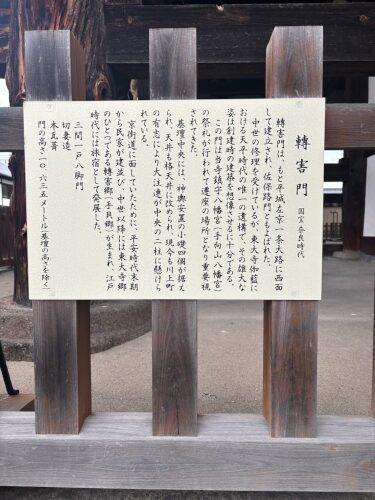 轉害門 国宝 奈良時代
轉害門は、もと平城左京一条大路に西面
して建立され、佐保路門ともよばれた。
中世の修理を受けているが、東大寺伽藍に
おける天平時代の唯一の遺構で、その雄大な
姿は創建時の建築を想像させるに十分である。
この門は当寺鎮守八幡宮（手向山八幡宮）
の祭礼が行われて遷座の場所となり重要視
されてきた。
基壇中央には、神輿安置の小礎四個が据え
られ、天井も格天井に改められ、現今も川上町
の有志により大注連が中央の二柱に懸けら
れている。
京街道に面していたために、平安時代末期
から民家が建並び、中世以降には東大寺郷
のひとつである轉害郷（手貝郷）が生まれ、江戸
時代には旅宿として発展した。
三間一戸八脚門
切妻造
本瓦葺
門の高さ一〇・六三五メートル（基壇の高さを除く）